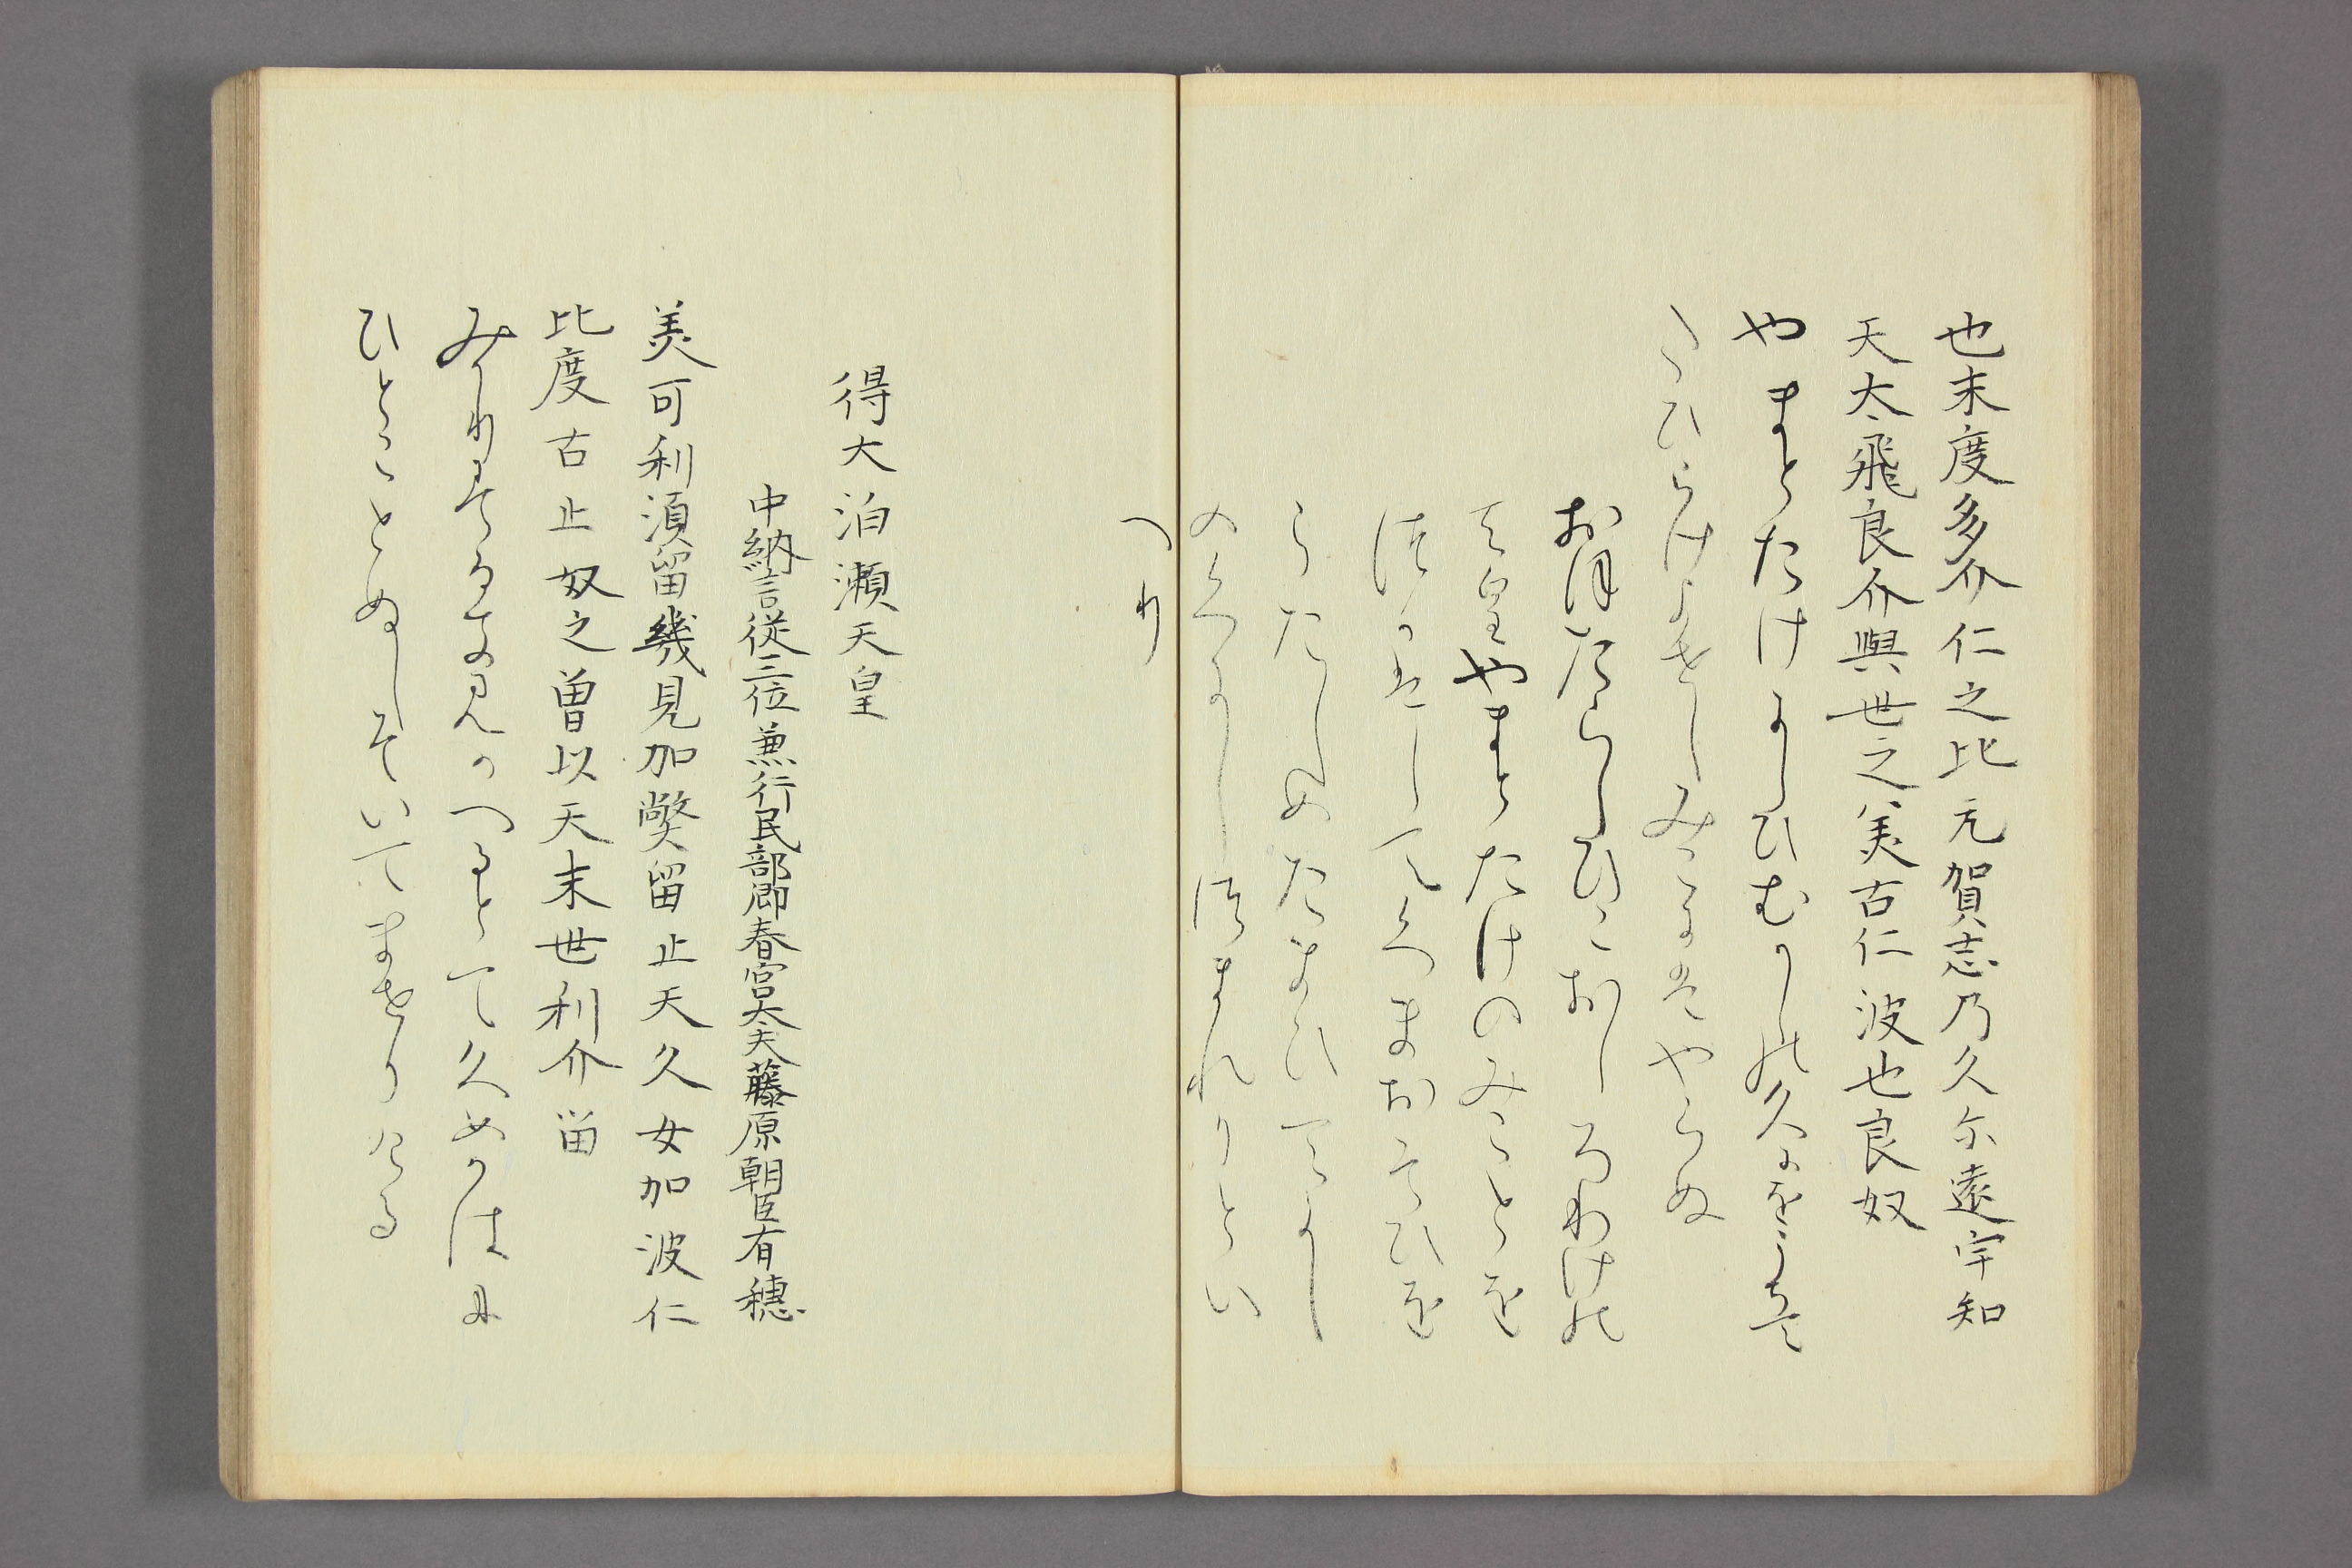 也末度多介仁之比元賀志乃久尓遠宇知
天太飛良介與世之美古仁波也良奴
やまとたけにしひむかしの久にをうち
てたひらけよせしみこにはやらぬ
おほたらしひこおしろわけの
天皇やまとたけのみことを
つかはしてくまおそひを
うたしめたまひてにし
のくにしつまれりとい
へり
得大泊瀬天皇
中納言従三位兼行民部卿春宮大夫藤原朝臣有穂
美可利須留幾見加弊留止天久女加波仁
比度古止奴之曽以天末世利介留
みかりするきみかへるとて久めかはに
ひとことぬしそいてませりける